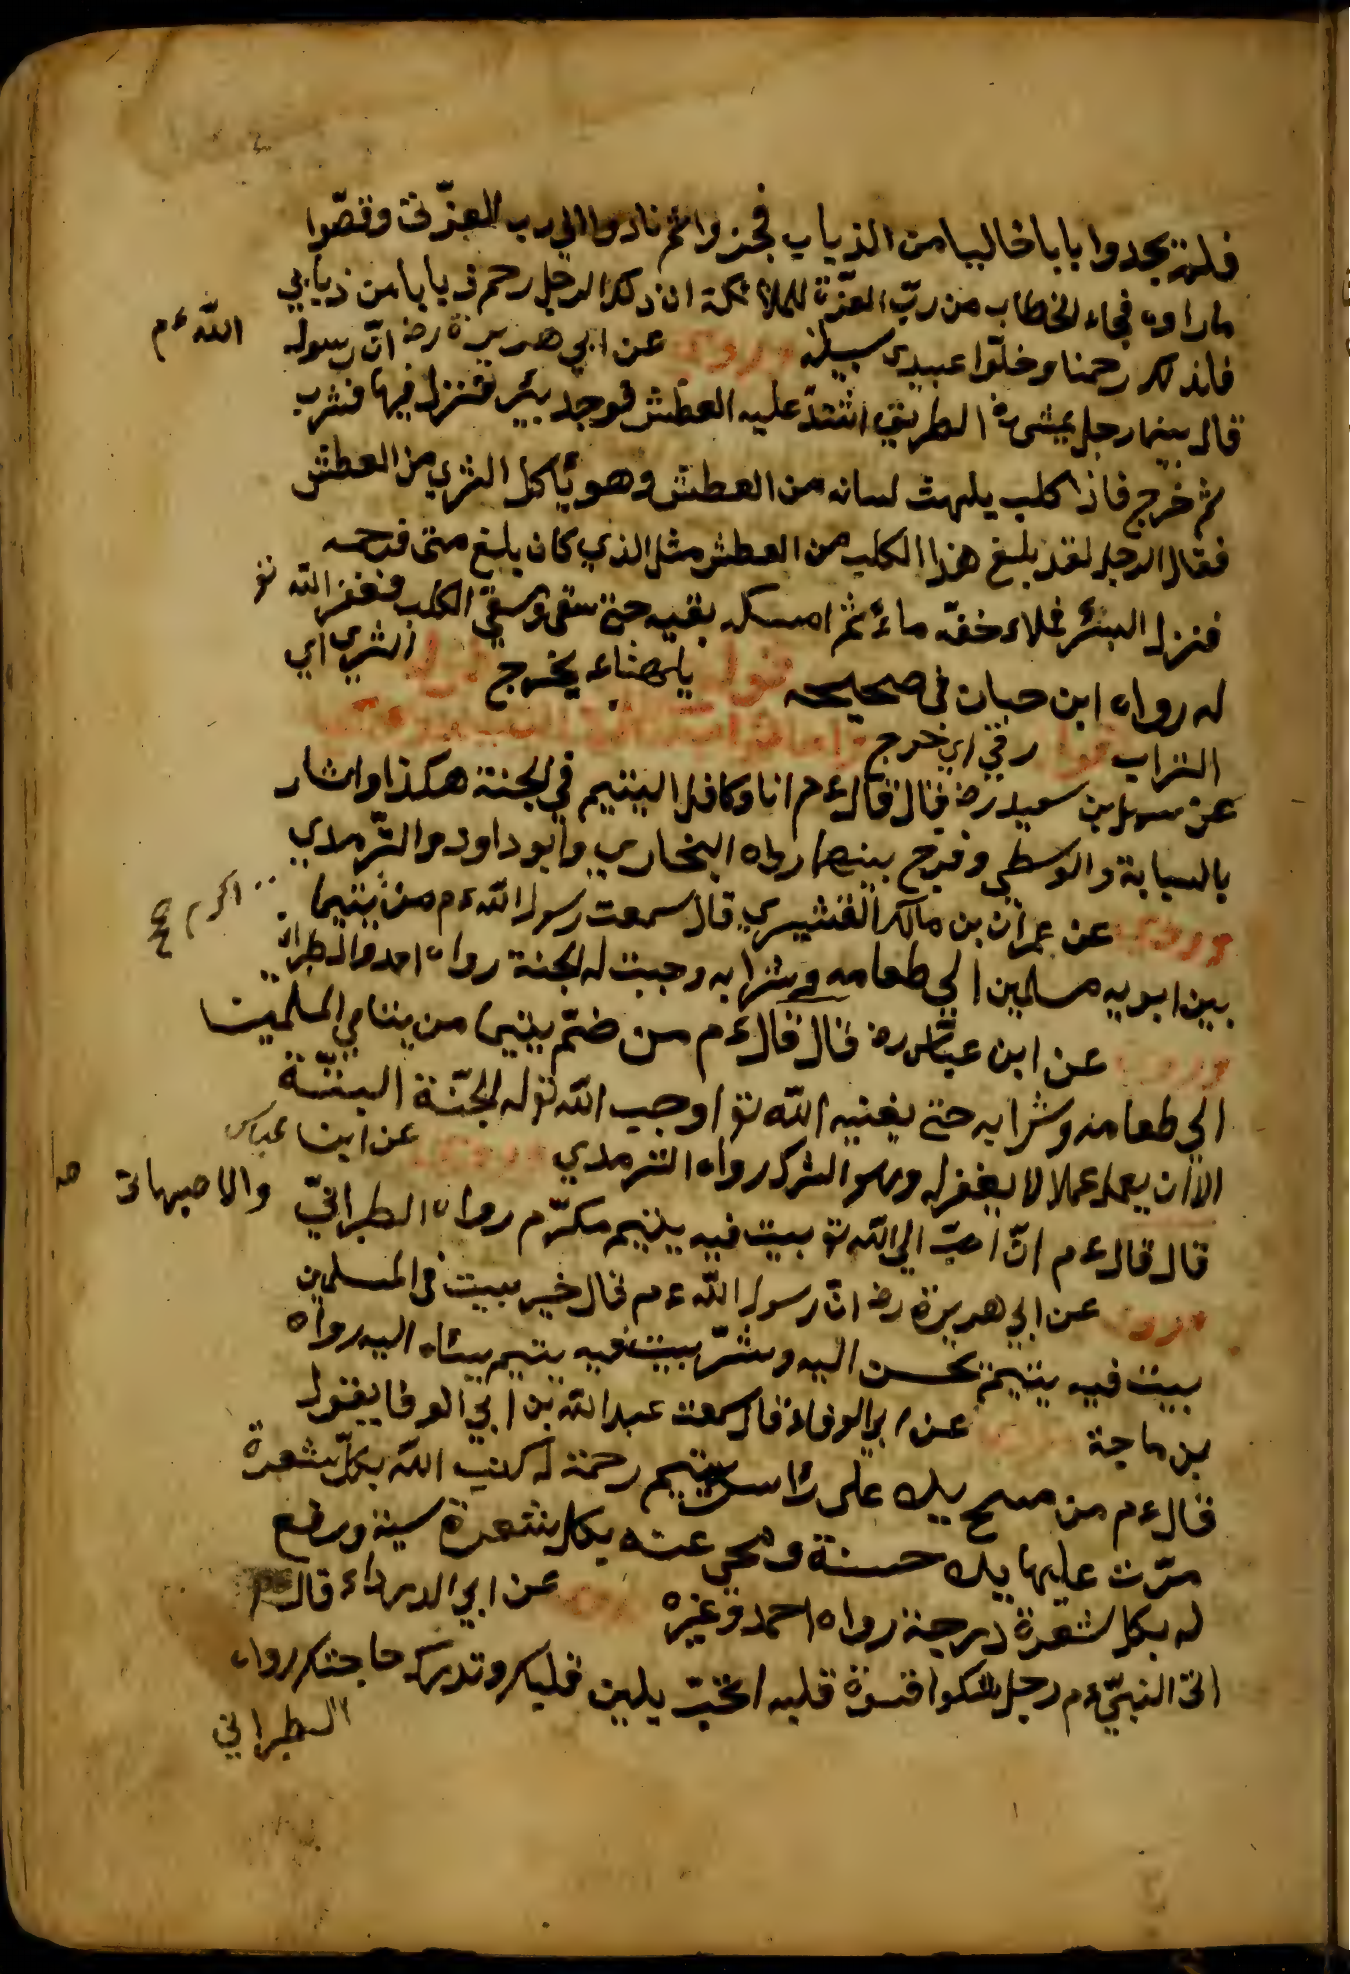 فلم يجدوا بابا خاليا من الذباب فجزوا ثم نادوا الي رب العزة وقصّوا
ما راوه فجاء الخطاب من ربّ العزّة للملائكة ان ذلك الرجل رحم ذبابا من ذبابي
فانذلك رحمنا وخلّوا عبيدي سبيله وروي عن ابي هريرة رض انّ رسول الله ءم
قال بينما رجل يمشي في الطريق اشتدّ عليه العطش فوجد بئر فنزل فيها فشرب
ثم خرج فاذا كلب يلهث لسانه من العطش وهو يأكل الثري من العطش
فقال الرجل لقد بلغ هذا الكلب من العطش مثل الذي كان بلغ متى فرحمه
فنزل البئر فملاء خفّه ماء ثم امسكه بفيه حتى سقى وسقي الكلب فغفر الله تع
له رواه ابن حبان في صحيحه قوله يلهث اي يخرج قوله الثري اي
التراب قوله رقي اي خرج
عن سهل بن سعيد رض قال قال ءم انا وكافل اليتيم في الجنة هكذا واشار
بالسبابة والوسطي وفرج بينهما رواه البخاري وابو داود والتّرمدي
وروي عن عمران بن مالك القشيري قال سمعت رسول الله ءم من يتيما اكرم
بين ابويه مسلمين الي طعامه وشرابه وجبت له الجنة رواه احمد والطبراني
وروي عن ابن عبّاس رض قال قال ءم من ضمّ يتيما من يتامي المسلمين
الي طعامه وشرابه حتى يغنيه الله تع اوجب الله تع له الجنّة البتّة
الاّ ان يعمل عملا لا يغفر له وهو الشرك رواه الترمدي وروي عن ابن عباس
قال قال ءم انّ احبّ الي الله تع بيت فيه يتيم مكرّم رواه الطبرانيّ والاصبهاني
وروي عن ابي هريرة رض انّ رسول الله ءم قال خير بيت في المسلمين
بيت فيه يتيم يحسن اليه وشرّ بيت فيه يتيم يساء اليه رواه
بن ماجة وروي عن ابي الوفاء قال سمعت عبد الله بن ابي الوفا يقول
قال ءم من مسح يده على رأس يتيم رحمة له كتب الله بكلّ شعرة
مرّت عليها يده حسنة ومحي عنه بكل شعرة سيئة ورفع
له بكل شعرة درجة رواه احمد وغيره وروي عن ابي الدرداء قال
اتى النبيّ ءم رجل يشكوا قسوة قلبه اتحبّ يلين قلبك وتدرك حاجتك رواه
الطبراني